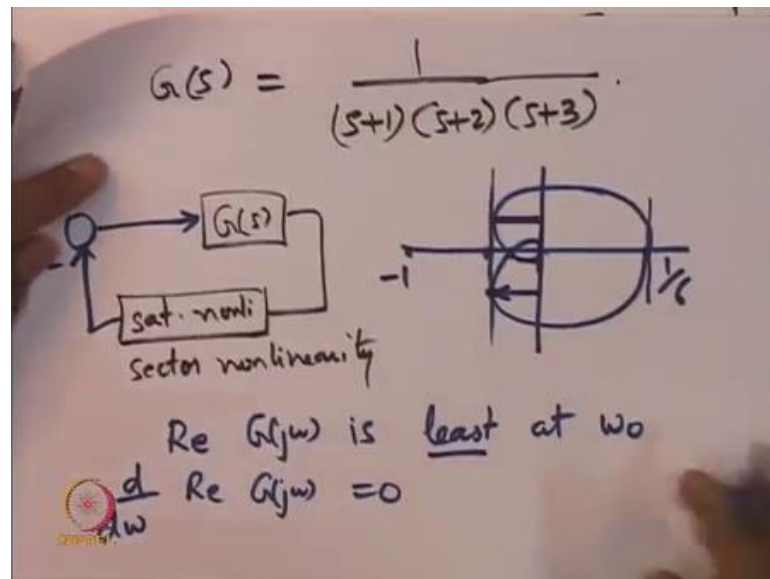 G(s) = 1 / (s+1)(s+2)(s+3).
G(s)
-
sat. nonli
sector nonlinearity
-1
1/6
Re G(jw) is least at w0
d/dw Re G(jw) = 0